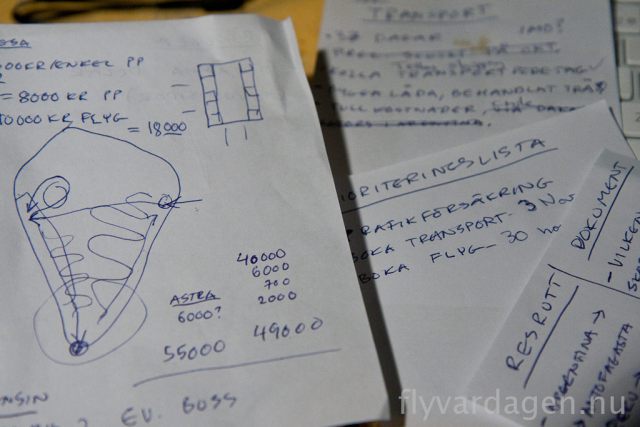 OSSA
500KR/ENKEL PP
2
= 8000 KR PP
10000 KR FLYG
= 18000
40000
6000
700
2000
49000
ASTRA
6000?
55000
ENSIN
? EV. GOSS
TRANSPORT
DAGAR
KOLLA TRANSPORTFÖRETAG
LÅDA, BEHANDLAT TRÄ
TULLKOSTNADER,
IORITERINGSLISTA
TRAFIKFÖRSÄKRING
BOKA TRANSPORT - 3 NOV
BOKA FLYG - 30 NOV
DOKUMENT
- VILKEN
RESRUTT
- ARGENTINA →
ANTOFAGASTA
flyvardagen.nu